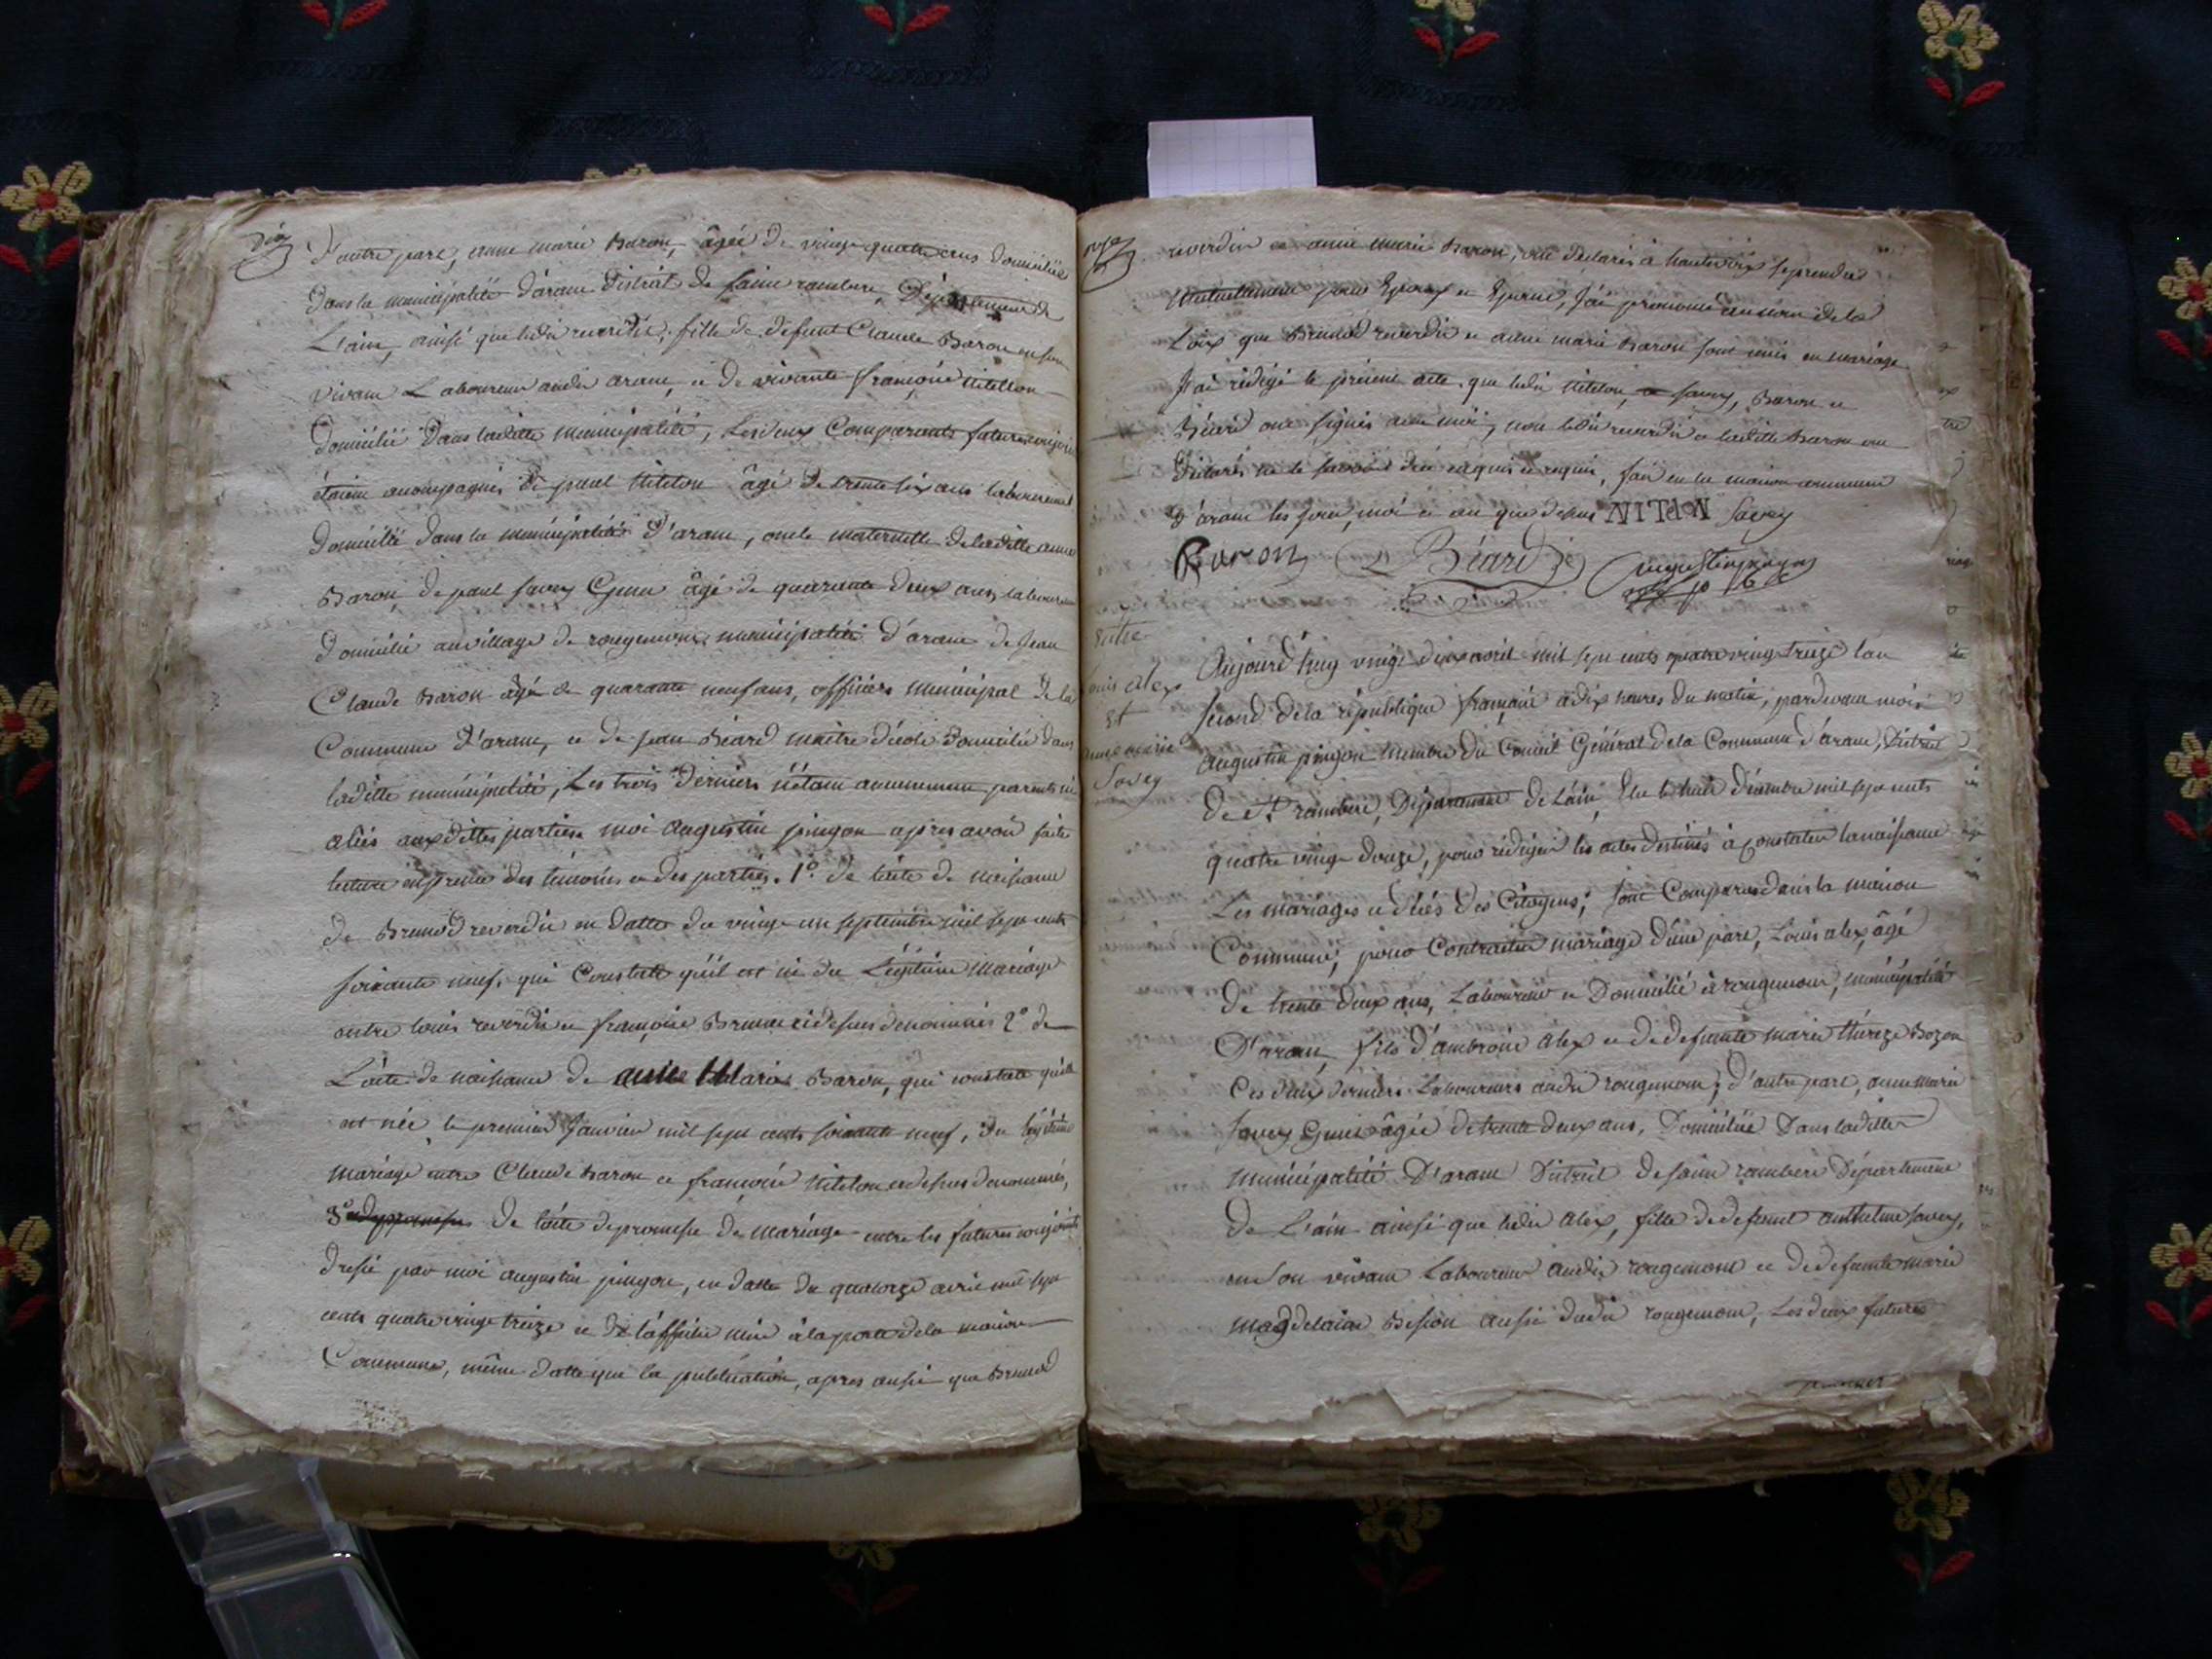 dix
D'autre part, anne marie Baron, âgée de vingt quatre ans domiciliée
dans la municipalité d'arane district de saint rambert, Département de
L'ain, ainsi que ledit reverdit, fille de defunt Claude Baron en son
vivant Laboureur audit arane, et de vivante françoise Nitelon
domiciliée dans laditte municipalité, Les deux Comparants futurs conjoints
étaient accompagnés de paul Nitelon âgé de trente six ans laboureur
domicilié dans la municipalité d'arane, oncle maternelle de laditte anne
Baron, de paul savey âgé de quarante deux ans, laboureur
domicilié au village de rougemont municipalité d'arane de Jean
Claude Baron âgé de quarante neuf ans, officiers municipal de la
Commune d'arane, et de jean Béard maitre d'école domicilié dans
laditte municipalité, Les trois derniers n'étant aucunement parents ni
aliés auxdittes parties. moi augustin pingon apres avoir faite
lecture en presence des témoins et des parties. 1º. de l'acte de naissance
de Brunod reverdit en datte du vingt un septembre mil sept cents
soixante neuf, qui Constate qu'il est né du Légitime mariage
entre louis reverdit et françoise Brune cidessus denommés 2º de
L'acte de naissance de anne Marie Baron, qui constate qu'elle
est née le premier Janvier mil sept cents soixante neuf, du légitime
mariage entre Claude Baron et françoise Nitelon cidessus denommés,
3º de l'acte de promesse de mariage entre les futurs conjoints
dressé par moi augustin pingon, en datte du quatorze avril mil sept
cents quatre vingt treize et de l'affiche mise à la porte de la maison
Commune, même datte que la publication, apres aussi que Brunod
reverdit et anne marie Baron, ont déclarés à haute voix se prendre
Mutuellement pour Epoux et Epouse, j'ai prononcé au nom de la
Loix que Brunod reverdit et anne marie Baron sont unis en mariage
J'ai rédigé le présent acte que ledit Nitelon, savey, Baron et
Béard ont signés avec moi, non ledit reverdit et laditte Baron ont
déclarés ne le savoir de ce enquis et requis, fait en la maison commune
d'arane les jour, moi et an que dessus NITLON Savey
Baron Béard augustin pingon
Entre
louis alex
et
anne marie
Savey
Aujourd'huy vingt deux avril mil sept cents quatre vingt treize l'an
second de la république française à dix heures du matin, pardevant moi
augustin pingon membre du Conseil Général de la Commune d'arane, District
de St. rambert, Département de L'ain, Elu le huit décembre mil sept cents
quatre vingt douze, pour rédiger les actes destinés à Constater la naissance
Les mariages et décès des Citoyens; sont Comparus dans la maison
Commune, pour Contracter mariage d'une part, Louis alex, âgé
de trente deux ans, Laboureur et Domicilié à rougemont, municipalité
D'arane, fils d'ambroise alex et de defunte marie thérèze Bozon
Ces deux derniers Laboureurs audit rougemont; d'autre part, anne marie
savey âgée de trente deux ans, Domiciliée Dans laditte
municipalité D'arane District de saint rambert Département
de L'ain ainsi que ledit alex, fille de defunt anthelme savey,
en son vivant Laboureur audit rougemont et de defunte marie
magdelaine Besson aussi dudit rougemont, Les deux futurs